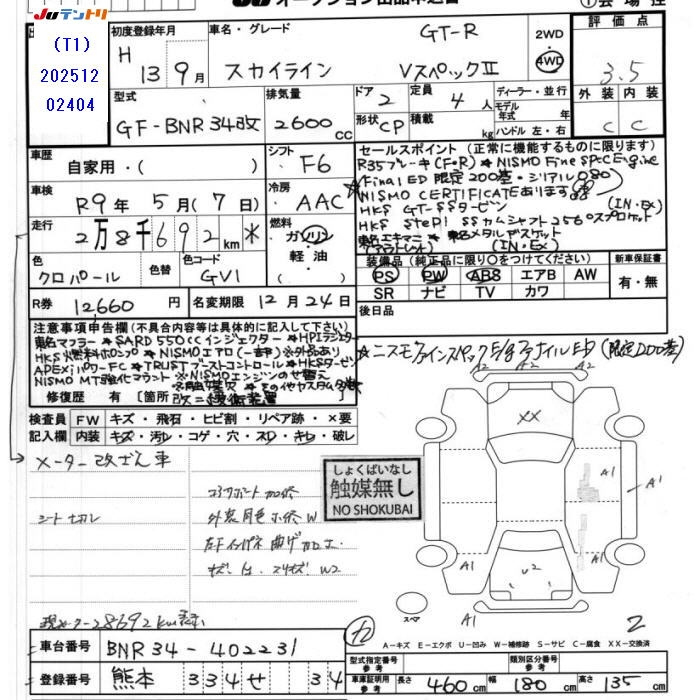 JUテントリ
オークション出品申込書
(T1)
202512
02404
初度登録年月
H 13 9月
車名・グレード
スカイライン
GT-R
VスペックⅡ
2WD
・
4WD
評価点
3.5
外装 内装
C C
型式
GF-BNR34改
排気量
2600cc
ドア 2
形状 CP
定員 4人
積載 kg
ディーラー・並行
モデル年式 年
ハンドル 左・右
車歴
自家用・( )
シフト
F6
車検
R9年5月(7日)
冷房
AAC
走行
2万8千692km *
燃料
ガソリン
軽油
・
色
クロパール
色替
色コード
GV1
R券
12660円
名変期限 12月24日
セールスポイント(正常に機能するものに限ります)
R35ブレーキ(F・R) ※NISMO Fine SPEC Engine
(Final ED 限定200基・シリアル080)
NISMO CERTIFICATEあります
HKS GT-SSタービン (IN・EX)
HKS STEP1 SSカムシャフト256°スプロケット
東名エキマニ ※東名メタルガスケット
(アウトレット) (IN・EX)
装備品(純正品に限り○をつけてください)
PS PW ABS エアB AW
SR ナビ TV カワ
新車保証書
有・無
後日品
注意事項申告欄(不具合内容等は具体的に記入して下さい)
東名マフラー ※SARD 550ccインジェクター ※HPIラジエター
HKS燃料ポンプ ※NISMOエアロ(一部)※外品あり
APEXiパワーFC ※TRUSTブーストコントロール ※HKSタービン
NISMO MT強化マウント ※NISMOエンジンのせ替え
※触媒欠 ※その他カスタム多数
修復歴 有 [箇所 改ニ 緩衝装置
☆ニスモファインスペックE/gファイナルED(限定200基)
検査員記入欄
FW キズ・飛石・ヒビ割・リペア跡・×要
内装 キズ・汚レ・コゲ・穴・スレ・キレ・破レ
メーター改ざん車
シート切レ
コアサポート加修
外装同色ホ修W
左Fインパネ曲ゲ加工
キズ、凹、スリキズ、W2
現メーター28692km表示
しょくばいなし
触媒無し
NO SHOKUBAI
XX
A1
A1
A1
A1
A1
U2
スペア
2
A-キズ E-エクボ U-凹み W-補修跡 S-サビ C-腐食 XX-交換済
車台番号 BNR34-402231
登録番号 熊本 334せ 34
型式指定番号 参考
類別区分番号 参考
車庫証明用 参考 長さ 460cm 幅 180cm 高さ 135cm